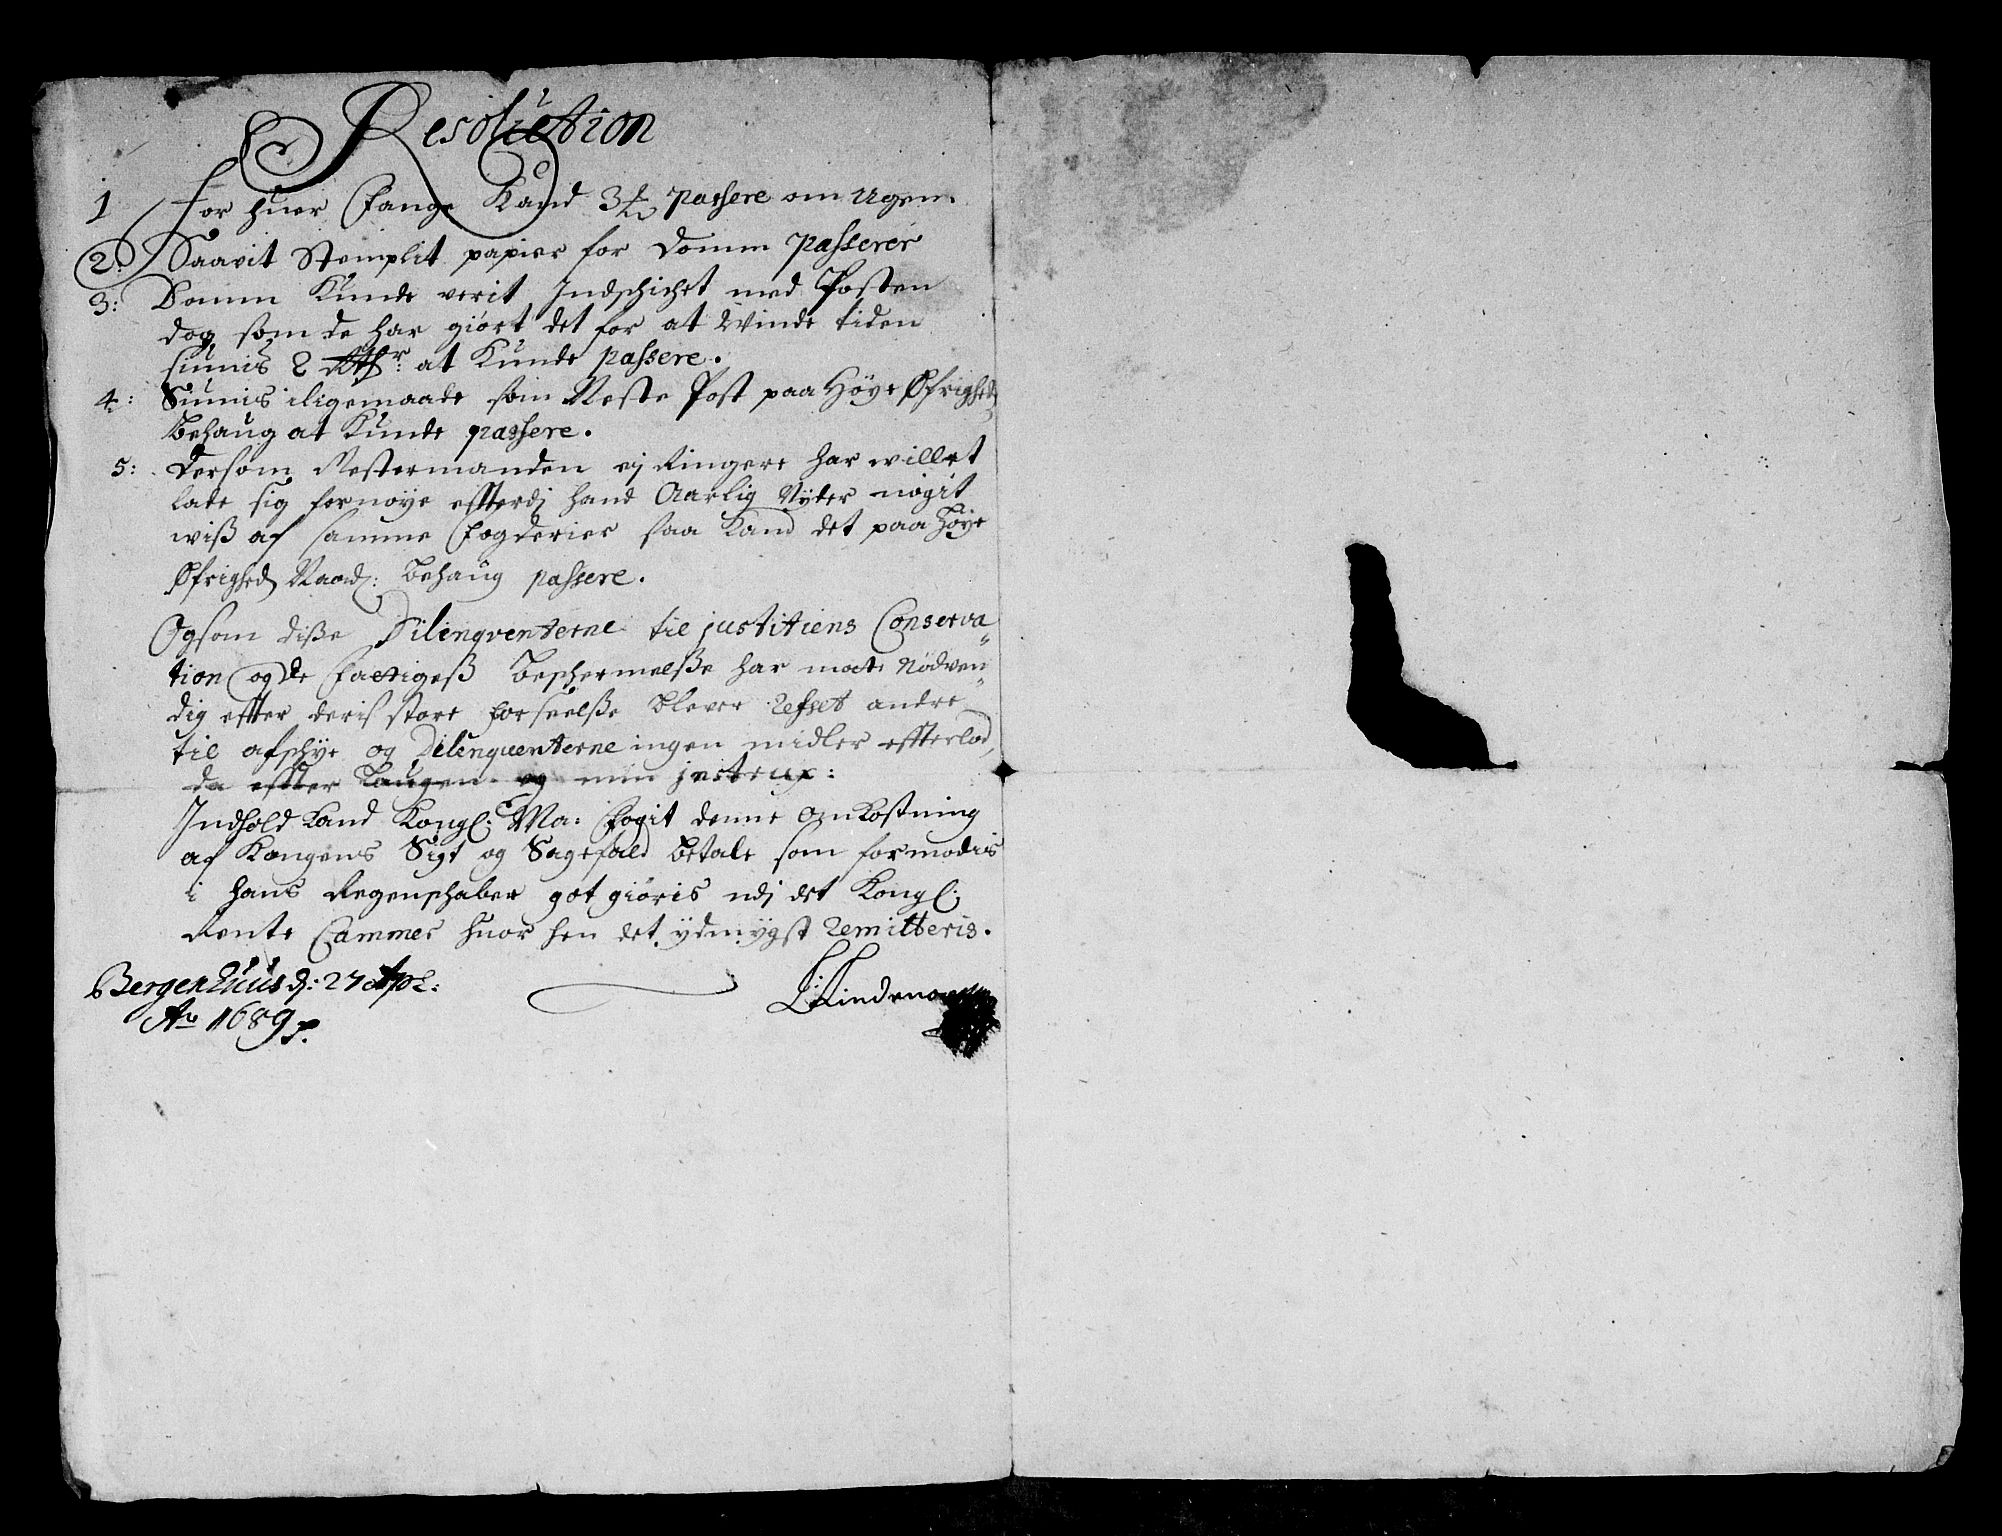 Resolution
1 For huer Fange Kand 3 passere om Ugen.
2: Saavit Stemplit papier for Domm Passerer
3: Domm Kunde verit Indschichet med Posten
dog som de har giort det for at Winde tiden
siunis 2 Rdr: at Kunde passere.
4: Siunis iligemaade som Neste Post paa Høye Øfrigheds
Behaug at Kunde passere.
5: Dersom Mestermanden ej Ringere har willet
lade sig fornøye effterdj hand Aarlig Nyder nogit
wiß af samme Fogderier saa Kand det paa Høye
Øfrigheds Naad: Behaug passere.
Ogsom diße Dilinqventerne til justitiens Conserva
tion og de Fattigeß Beschermelße har mate Nødven
dig effter deris store forseelße blever refset andre
til afschye og Delinquenterne ingen midler effterlod,
da effter Laugen og min jnstrux:
Indhold Kand Kongl: Ma: Fogit denne Omkostning
af Kongens Sigt og Sagefald betale som formodis
i hans Regenschaber got giøris udj det Kongl:
Rente Cammer huor hen det ydmygst Remitteris.
Bergenhuus d: 27 Apl:
Ao 1689
Lindenow